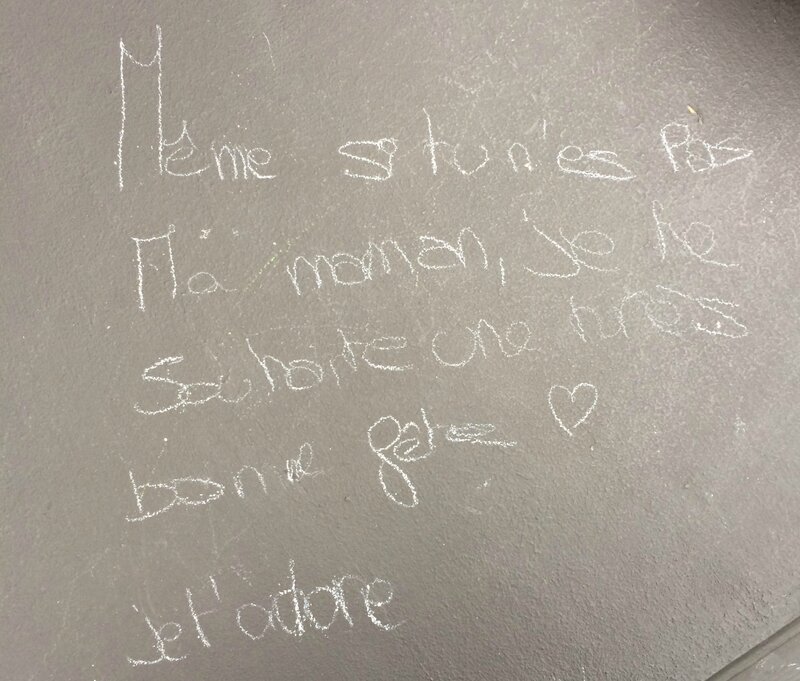 Même si tu n'es Pas
Ma maman, je te
souhaite une très
bonne fête ♡
Je t'adore